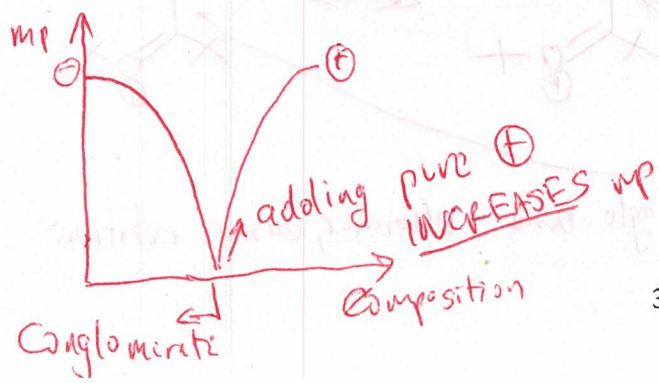 mp
⊖
⊕
adding pure ⊕
INCREASES mp
Composition
Conglomirate
3